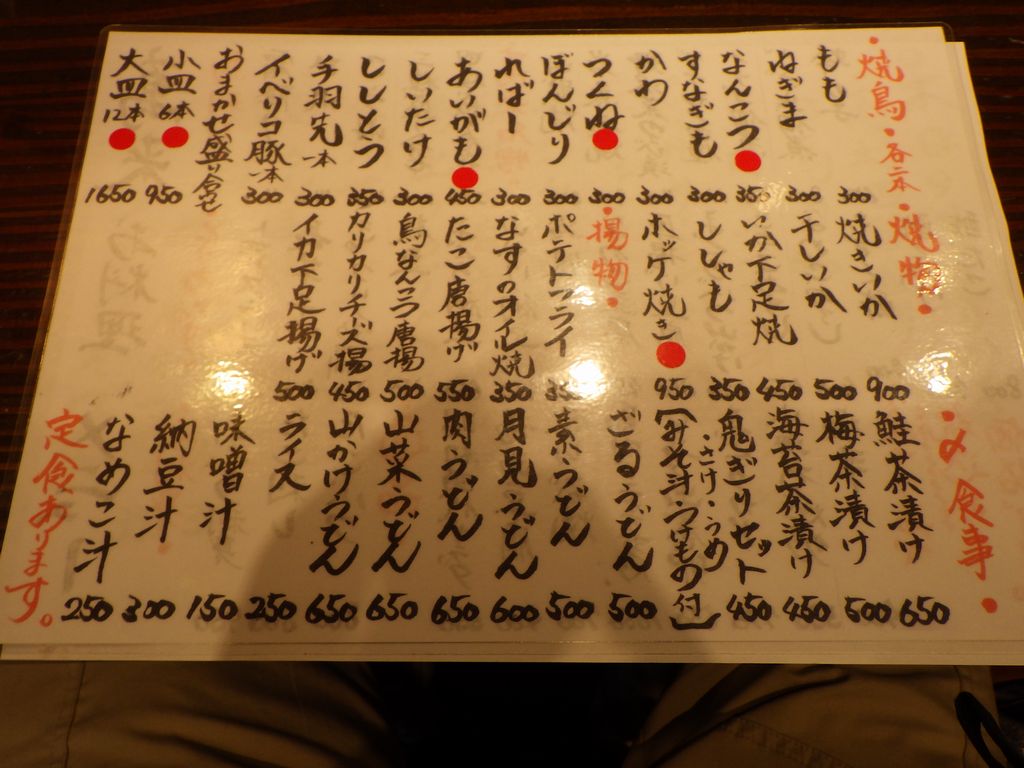 ・焼鳥・各二本・
もも 300
ねぎま 300
なんこつ 350
すなぎも 300
かわ 300
つくね 300
ぼんじり 300
ればー 300
あいがも 450
しいたけ 300
ししとう 350
手羽先 一本 300
イベリコ豚 一本 300
おまかせ盛り合せ
小皿 6本 950
大皿 12本 1650
・焼物・
焼きいか 900
干しいか 500
いか下足焼 450
ししゃも 350
ホッケ焼き 950
・揚物・
ポテトフライ 350
なすのオイル焼 350
たこ唐揚げ 550
鳥なんこつ唐揚 500
カリカリチーズ揚 450
イカ下足揚げ 500
・〆 食事・
鮭茶漬け 650
梅茶漬け 500
海苔茶漬け 450
鬼ぎりセット 450
・さけ・うめ
(みそ汁つけもの付)
ざるうどん 500
素うどん 500
月見うどん 600
肉うどん 650
山菜うどん 650
山かけうどん 650
ライス 250
味噌汁 150
納豆汁 300
なめこ汁 250
定食あります。